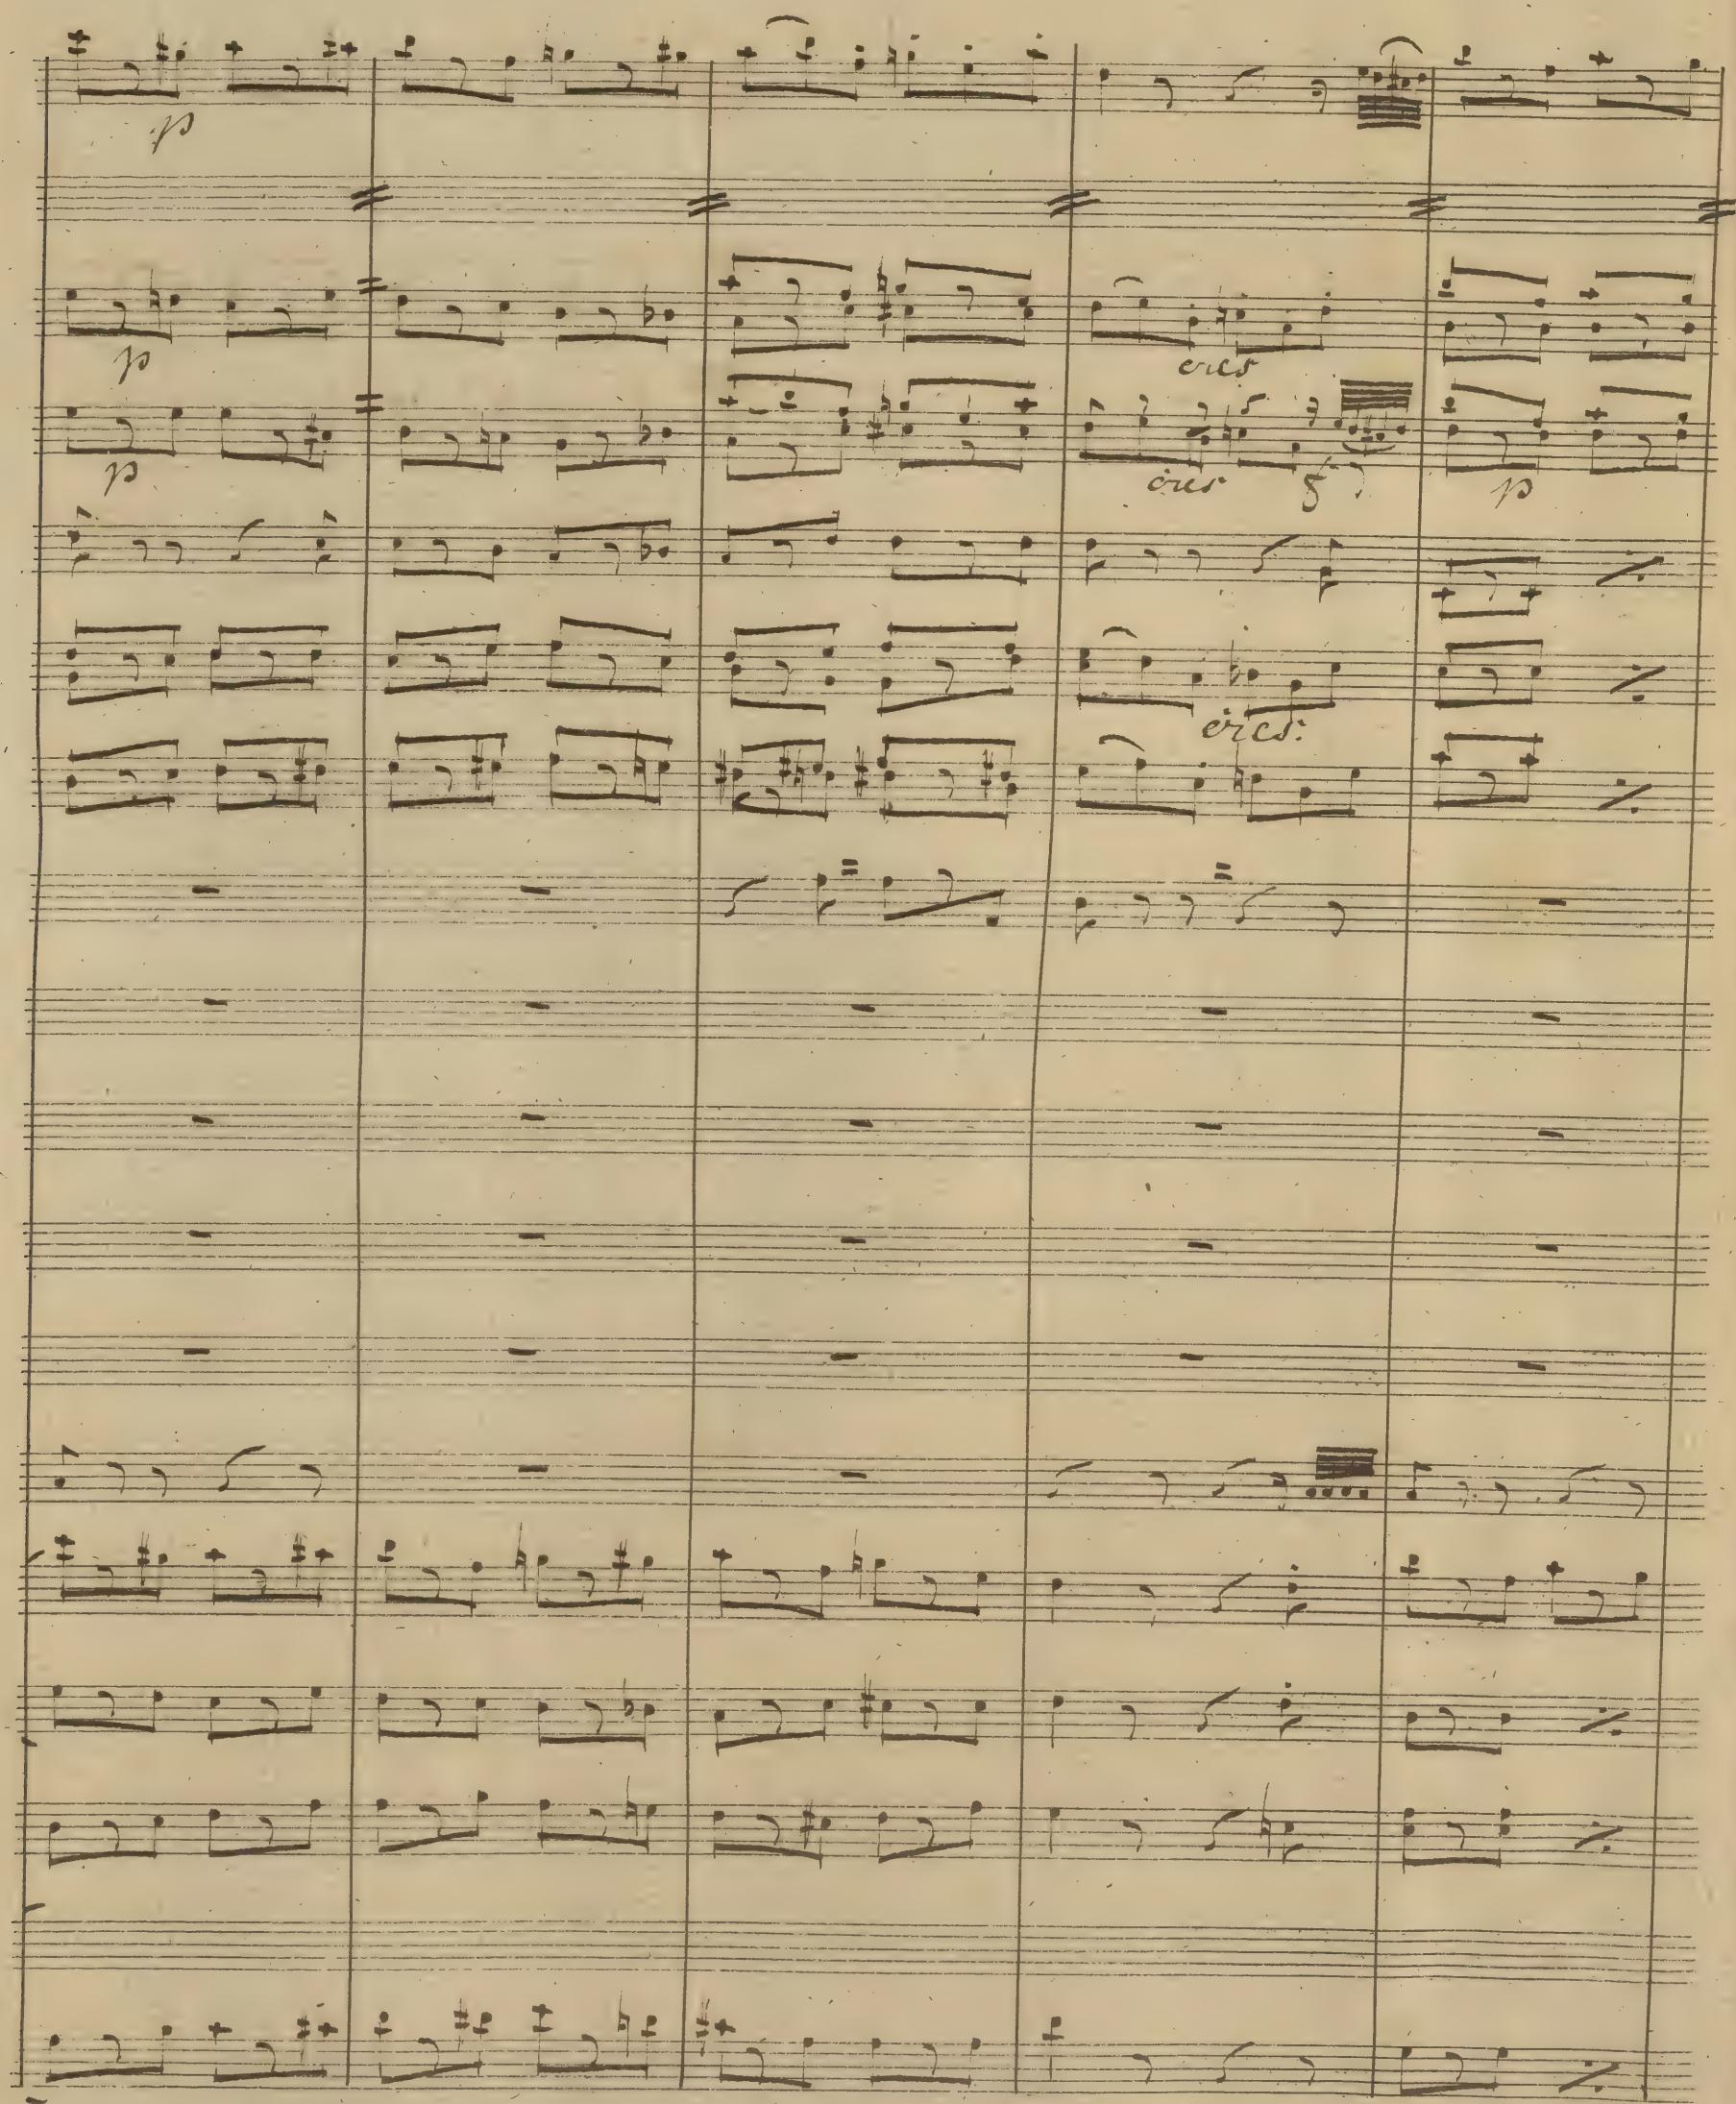 p
p
cres
p
cres f p
cres: